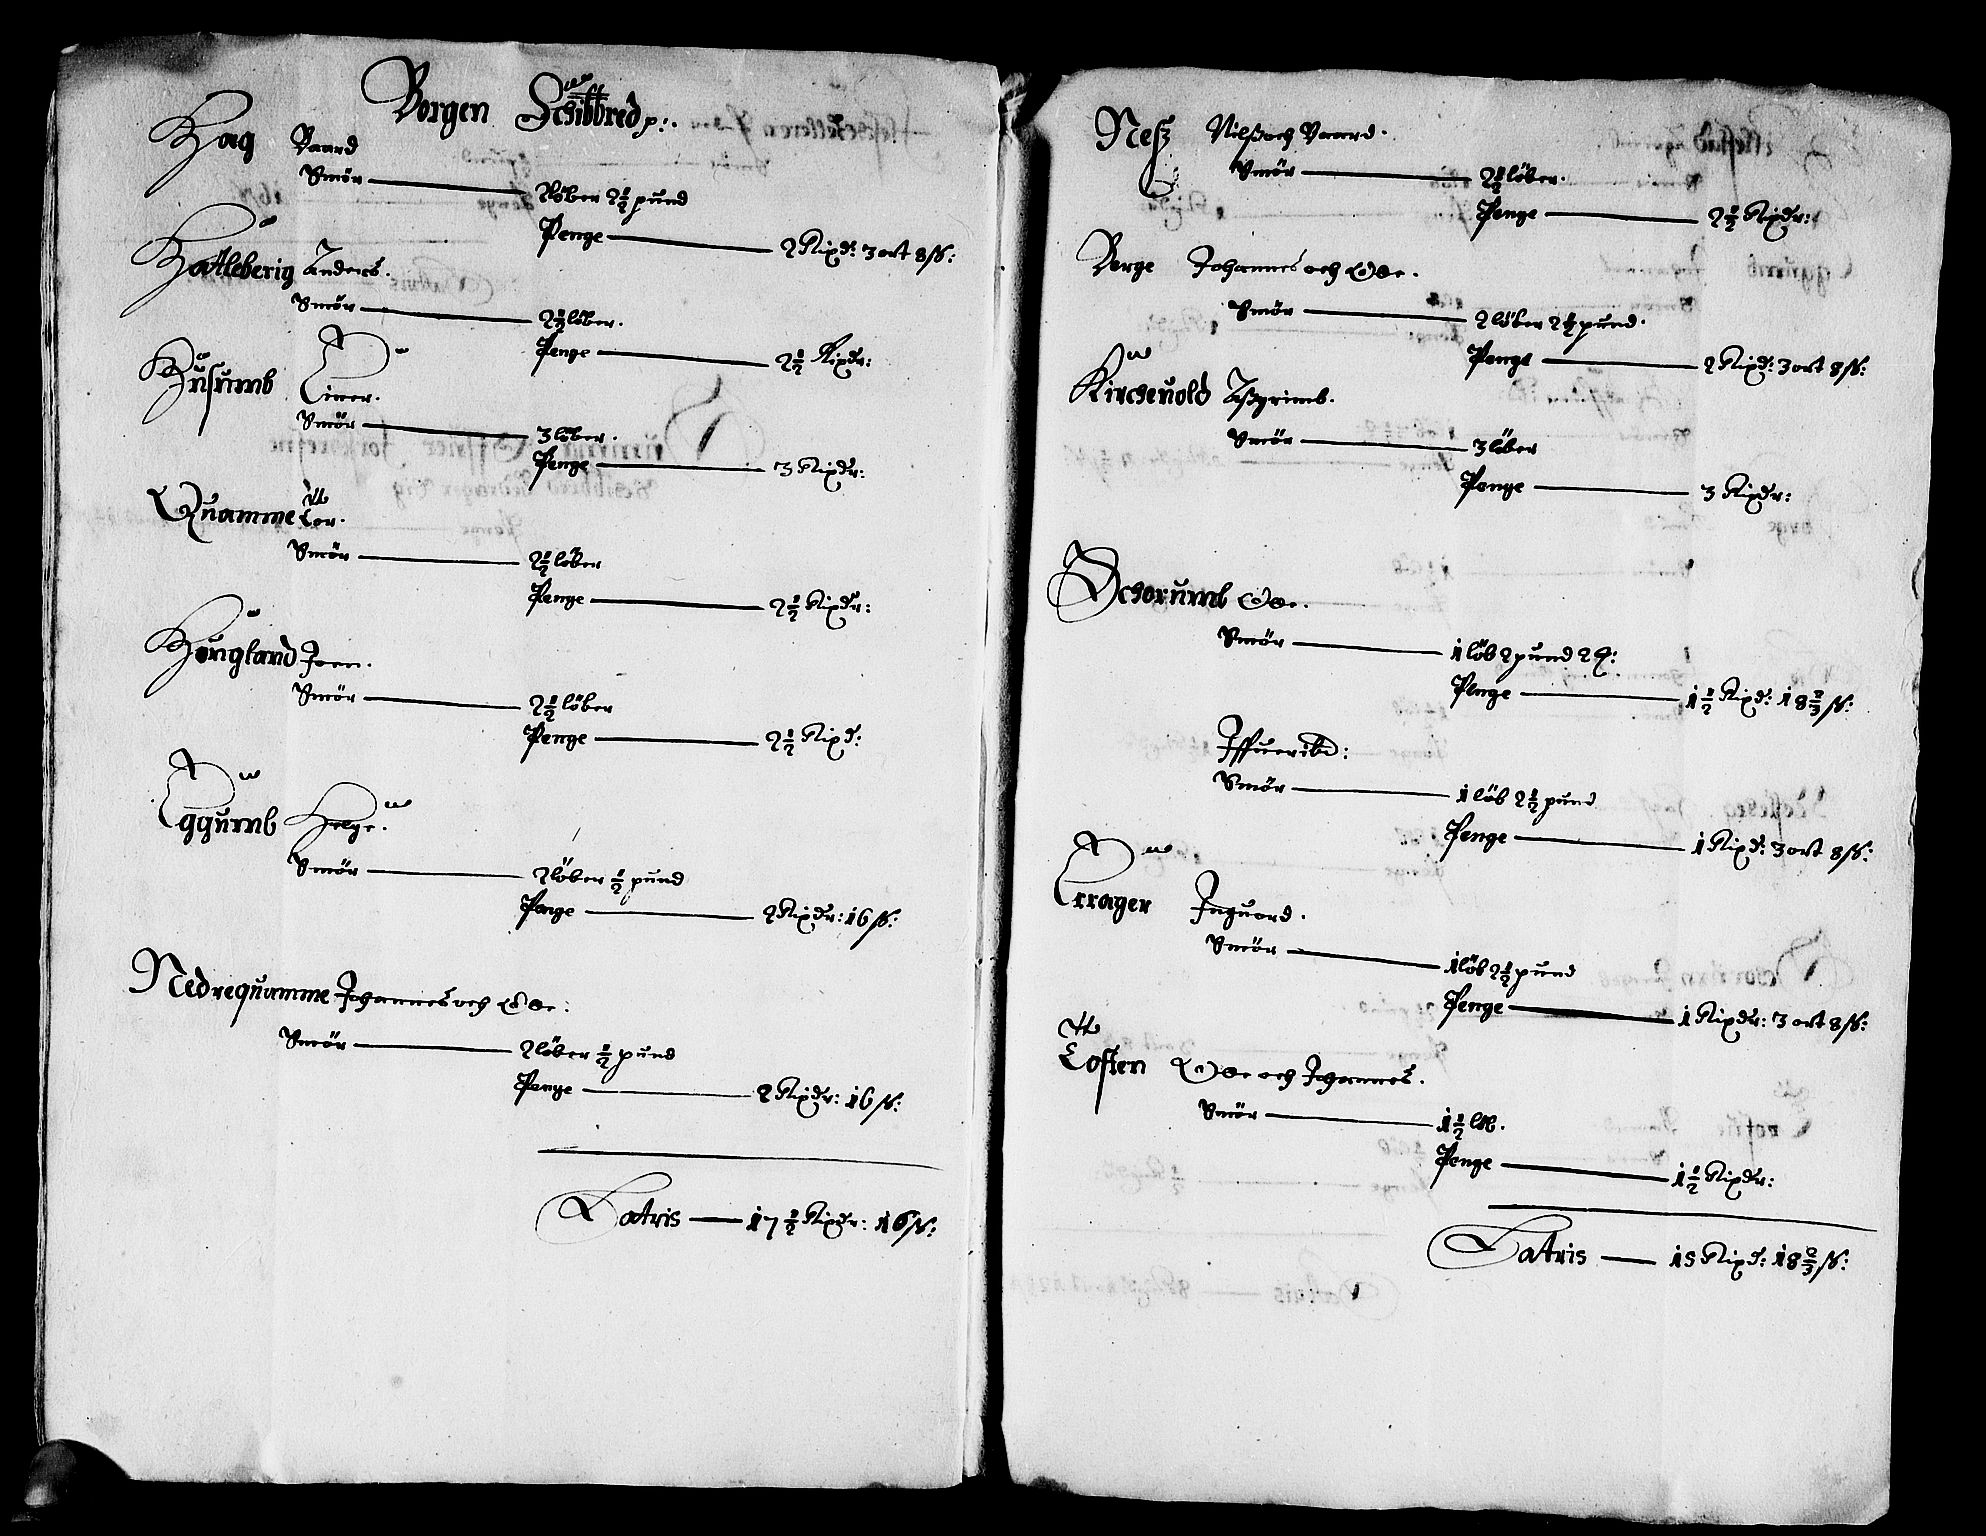 Borgen Schibbred p:.
Hag Baard
Smör — 2löber 2½ pund
Penge — 2 Rixd: 3 ort 8 ß:
Hatleberig Anders.
Smör — 2½ löber.
Penge — 2½ Rixdr:
Husumb Einer.
Smör — 3 löber.
Penge — 3 Rixdr:
Quamme Tor.
Smör — 2½ löber
Penge — 2½ Rixdr:
Høugland Joen.
Smör — 2½ löber
Penge — 2½ Rixd:
Eggumb Helge.
Smör — 2löber ½ pund
Penge — 2 Rixdr: 16 ß:
Nedrequamme Johannes och Ole:
Smör — 2löber ½ pund
Penge — 2 Rixdr: 16 ß:
Latris — 17½ Rixdr: 16 ß:
Nesz Nilß och Baard.
Smör — 2½ löber.
Penge — 2½ Rixdr:
Berge Johannes och Ole.
Smör — 2löber 2½ pund.
Penge — 2 Rixd: 3 ort 8 ß:
Kircheuold Aßgrimb.
Smör — 3 löber
Penge — 3 Rixdr:
Schorumb Ole.
Smör — 1 löb 2 pund 2
Penge — 1½ Rixd: 18⅔ ß:
Smör — 1 löb 2½ pund
Penge — 1 Rixd: 3 ort 8 ß:
Errager Inguord.
Smör — 1 löb 2½ pund
Penge — 1 Rixdr: 3 ort 8 ß:
Toften Ole och Johannes.
Smör — 1½ löb.
Penge — 1½ Rixdr:
Latris — 15 Rixd: 18⅔ ß: